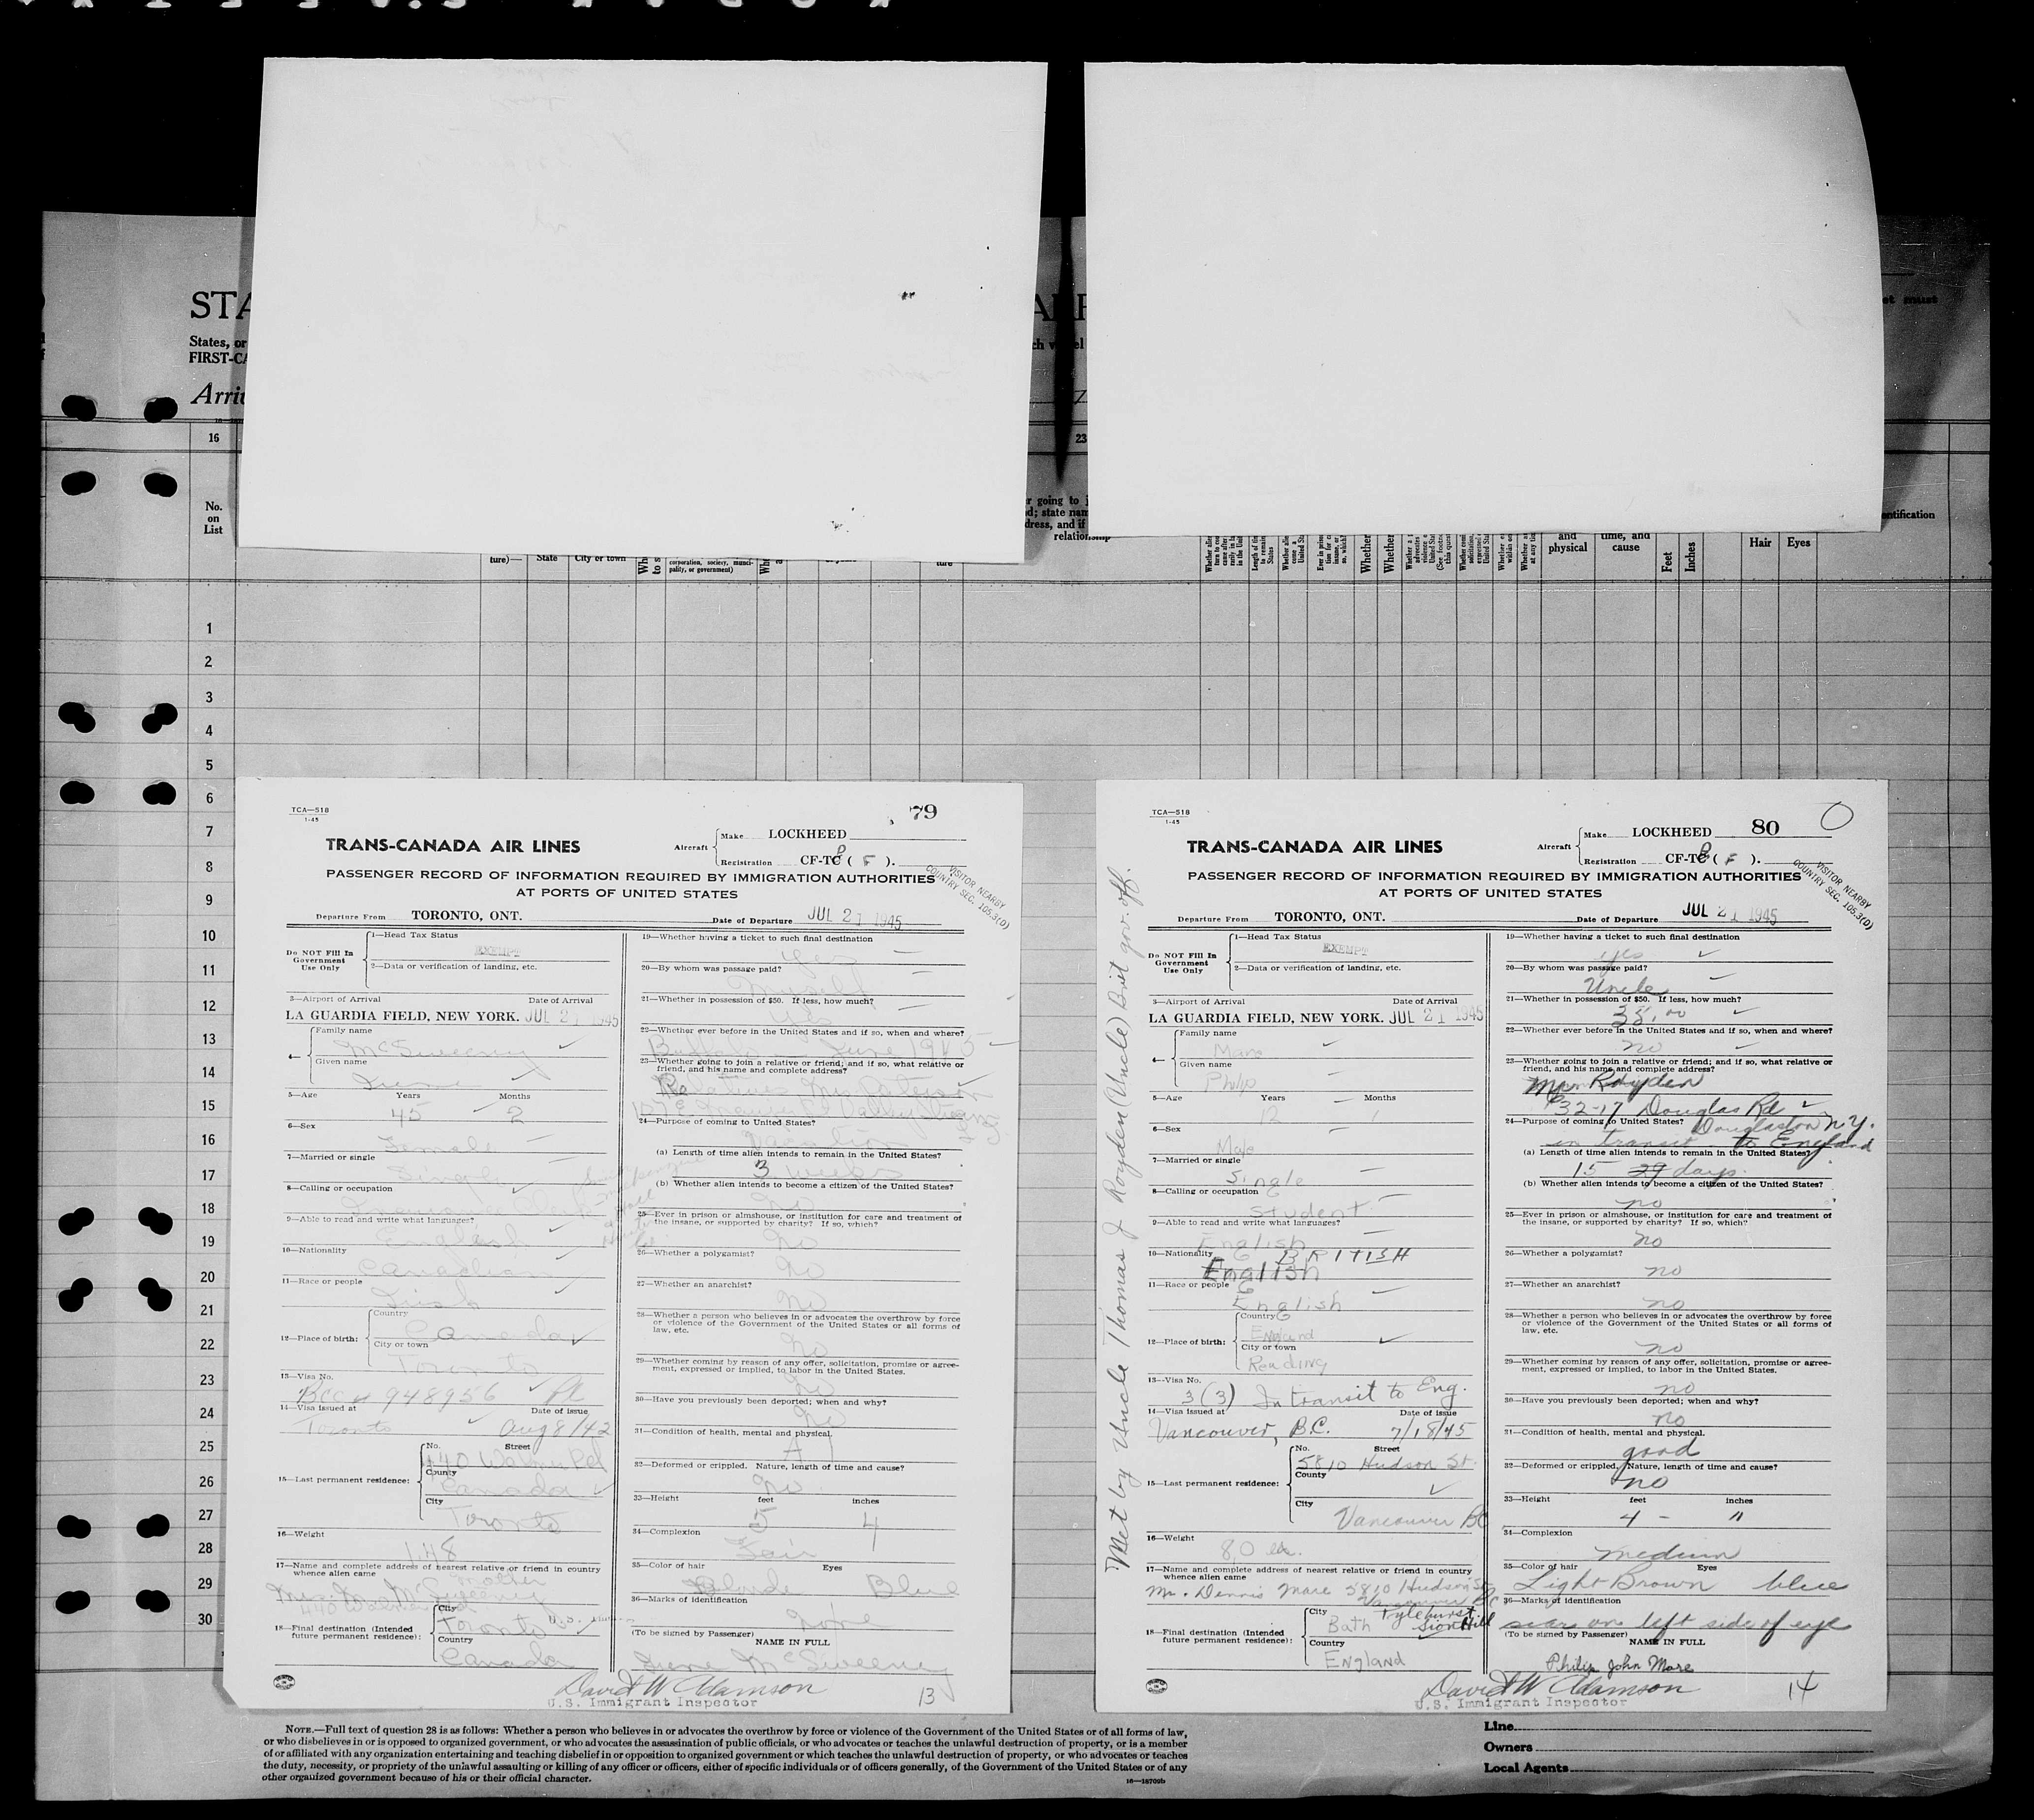 STA
States, or
FIRST-CA
16
23
No.
on
List
ture)—
State
City or town
corporation, society, munici-
pality, or government)
relationship
and
physical
time, and
cause
Feet
Inches
Hair
Eyes
1
2
3
4
5
6
7
8
9
10
11
12
13
14
15
16
17
18
19
20
21
22
23
24
25
26
27
28
29
30
TCA—518
1-45
79
TRANS-CANADA AIR LINES
Aircraft
Make LOCKHEED
Registration CF-TC ( F ).
PASSENGER RECORD OF INFORMATION REQUIRED BY IMMIGRATION AUTHORITIES
AT PORTS OF UNITED STATES
VISITOR NEARBY
COUNTRY SEC. 105.3(D)
Departure From TORONTO, ONT. Date of Departure JUL 21 1945
Do NOT Fill In
Government
Use Only
1—Head Tax Status
EXEMPT
2—Data or verification of landing, etc.
3—Airport of Arrival Date of Arrival
LA GUARDIA FIELD, NEW YORK. JUL 21 1945
4—
Family name
McSweeney
Given name
Irene
5—Age Years Months
45 2
6—Sex
Female
7—Married or single
Single
8—Calling or occupation
9—Able to read and write what languages?
English
10—Nationality
Canadian
11—Race or people
Irish
12—Place of birth:
Country
Canada
City or town
Toronto
13—Visa No.
BCC # 948956
14—Visa issued at Date of issue
Toronto Aug 8/42
15—Last permanent residence:
No. Street
440 Walmer Rd
County
Canada
City
Toronto
16—Weight
148
17—Name and complete address of nearest relative or friend in country
whence alien came
Mother
Mrs. M. McSweeney
440 Walmer Rd
18—Final destination (Intended
future permanent residence):
City
Toronto
Country
Canada
19—Whether having a ticket to such final destination
Yes
20—By whom was passage paid?
Myself
21—Whether in possession of $50. If less, how much?
Yes
22—Whether ever before in the United States and if so, when and where?
Buffalo June 1945
23—Whether going to join a relative or friend; and if so, what relative or
friend, and his name and complete address?
24—Purpose of coming to United States?
Vacation
(a) Length of time alien intends to remain in the United States?
3 weeks
(b) Whether alien intends to become a citizen of the United States?
No
25—Ever in prison or almshouse, or institution for care and treatment of
the insane, or supported by charity? If so, which?
No
26—Whether a polygamist?
No
27—Whether an anarchist?
No
28—Whether a person who believes in or advocates the overthrow by force
or violence of the Government of the United States or all forms of
law, etc.
No
29—Whether coming by reason of any offer, solicitation, promise or agree-
ment, expressed or implied, to labor in the United States.
No
30—Have you previously been deported; when and why?
No
31—Condition of health, mental and physical.
A 1
32—Deformed or crippled. Nature, length of time and cause?
No
33—Height feet inches
5 4
34—Complexion
Fair
35—Color of hair Eyes
Blonde Blue
36—Marks of identification
None
(To be signed by Passenger)
NAME IN FULL
Irene McSweeney
David W Adamson
U.S. Immigrant Inspector
13
TCA—518
1-45
80
TRANS-CANADA AIR LINES
Aircraft
Make LOCKHEED
Registration CF-TC ( F ).
PASSENGER RECORD OF INFORMATION REQUIRED BY IMMIGRATION AUTHORITIES
AT PORTS OF UNITED STATES
VISITOR NEARBY
COUNTRY SEC. 105.3(D)
Met by Uncle Thomas J Royden (Uncle) Brit gov. off.
Departure From TORONTO, ONT. Date of Departure JUL 21 1945
Do NOT Fill In
Government
Use Only
1—Head Tax Status
EXEMPT
2—Data or verification of landing, etc.
3—Airport of Arrival Date of Arrival
LA GUARDIA FIELD, NEW YORK. JUL 21 1945
4—
Family name
Mare
Given name
Philip
5—Age Years Months
12
6—Sex
Male
7—Married or single
Single
8—Calling or occupation
Student
9—Able to read and write what languages?
English
10—Nationality BRITISH
English
11—Race or people
English
12—Place of birth:
Country
England
City or town
Reading
13—Visa No.
3(3) In transit to Eng.
14—Visa issued at Date of issue
Vancouver, B.C. 7/18/45
15—Last permanent residence:
No. Street
5810 Hudson St.
County
City
Vancouver BC
16—Weight
80 lbs.
17—Name and complete address of nearest relative or friend in country
whence alien came
Mr. Dennis Mare 5810 Hudson St
Vancouver BC
18—Final destination (Intended
future permanent residence):
City Tylehurst
Bath Sion Hill
Country
England
19—Whether having a ticket to such final destination
yes
20—By whom was passage paid?
Uncle
21—Whether in possession of $50. If less, how much?
35.00
22—Whether ever before in the United States and if so, when and where?
no
23—Whether going to join a relative or friend; and if so, what relative or
friend, and his name and complete address?
Royden
32-17 Douglas Rd
24—Purpose of coming to United States? Douglaston N.Y.
in transit to England
(a) Length of time alien intends to remain in the United States?
15 29 days.
(b) Whether alien intends to become a citizen of the United States?
no
25—Ever in prison or almshouse, or institution for care and treatment of
the insane, or supported by charity? If so, which?
no
26—Whether a polygamist?
no
27—Whether an anarchist?
no
28—Whether a person who believes in or advocates the overthrow by force
or violence of the Government of the United States or all forms of
law, etc.
no
29—Whether coming by reason of any offer, solicitation, promise or agree-
ment, expressed or implied, to labor in the United States.
no
30—Have you previously been deported; when and why?
no
31—Condition of health, mental and physical.
good
32—Deformed or crippled. Nature, length of time and cause?
no
33—Height feet inches
4 - 11
34—Complexion
medium
35—Color of hair Eyes
Light Brown blue
36—Marks of identification
scar on left side of eye
(To be signed by Passenger)
NAME IN FULL
Philip John Mare
David W Adamson
U.S. Immigrant Inspector
14
NOTE.—Full text of question 28 is as follows: Whether a person who believes in or advocates the overthrow by force or violence of the Government of the United States or of all forms of law,
or who disbelieves in or is opposed to organized government, or who advocates the assassination of public officials, or who advocates or teaches the unlawful destruction of property, or is a member
of or affiliated with any organization entertaining and teaching disbelief in or opposition to organized government or which teaches the unlawful destruction of property, or who advocates or teaches
the duty, necessity, or propriety of the unlawful assaulting or killing of any officer or officers, either of specific individuals or of officers generally, of the Government of the United States or of any
other organized government because of his or their official character.
16—18709b
Line
Owners
Local Agents